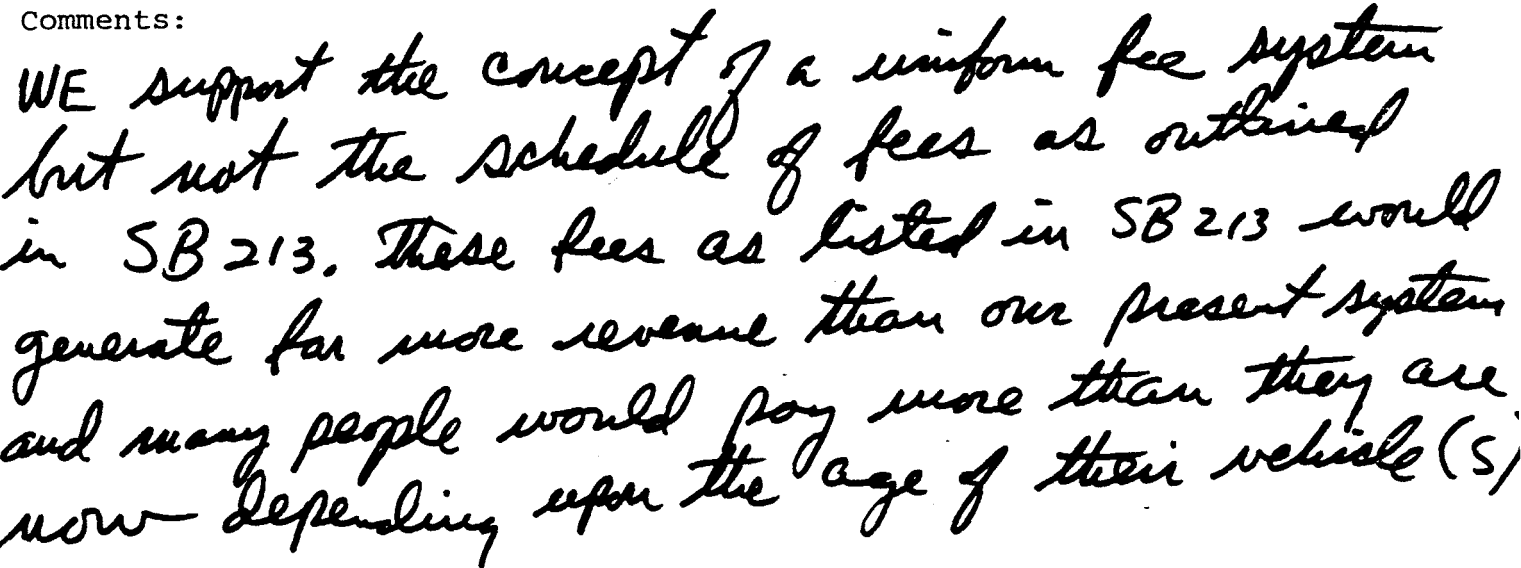 Comments:
WE support the concept of a uniform fee system
but not the schedule of fees as outlined
in SB 213. These fees as listed in SB 213 would
generate far more revenue than our present system
and many people would pay more than they are
now depending upon the age of their vehicle(s)